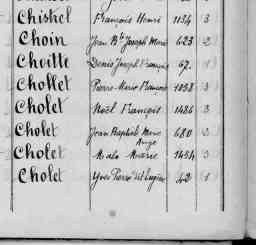 Chiskel François Henri 1134 3
Choin Jean Bte Joseph Marie 623 2
Choville Denis Joseph François 67 1
Chollet Pierre Marie François 1098 3
Cholet Noël François 1486 3
Cholet Jean Baptiste Marie 680 2
Ange
Cholet Malo Marie 1454 3
Cholet Yves Pierre 42 1